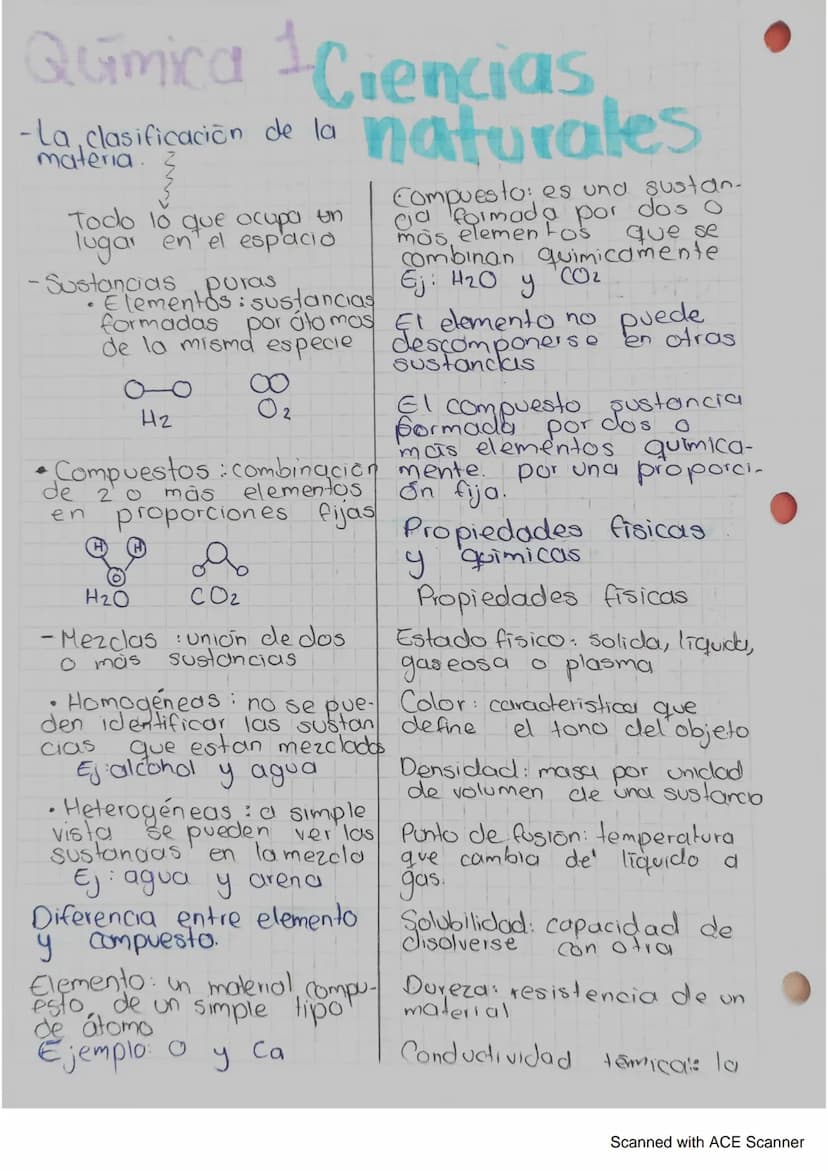 Química 1
Ciencias
naturales
- La clasificación de la
materia.
Todo lo que ocupa un
lugar en el espacio
- Sustancias puras
• Elementos: sustancias
formadas por átomos
de la misma especie
H2
O2
• Compuestos: combinación
de 2 o más elementos
en proporciones fijas
H
H
O
H2O
CO2
- Mezclas: unión de dos
o más sustancias
• Homogéneas: no se pue-
den identificar las sustan
cias que estan mezclados
Ej: alcohol y agua
• Heterogéneas: a simple
vista se pueden ver las
sustancias en la mezcla
Ej: agua y arena
Diferencia entre elemento
y compuesto.
Elemento: un material compu-
esto, de un simple tipo
de átomo
Ejemplo: O y Ca
Compuesto: es una sustan-
cia formada por dos o
más elementos que se
combinan quimicamente
Ej: H2O y CO2
El elemento no puede
descomponerse en otras
sustancias
El compuesto sustancia
formada por dos o
mas elementos quimica-
mente. por una proporci-
ón fija.
Propiedades físicas
y quimicas
Propiedades físicas
Estado físico: solida, líquida,
gaseosa o plasma
Color: caracteristica que
define el tono del objeto
Densidad: masa por unidad
de volumen de una sustancia
Punto de fusión: temperatura
que cambia de líquido a
gas.
Solubilidad: capacidad de
disolverse con otra
Dureza: resistencia de un
material
Conductividad témica: la
Scanned with ACE Scanner